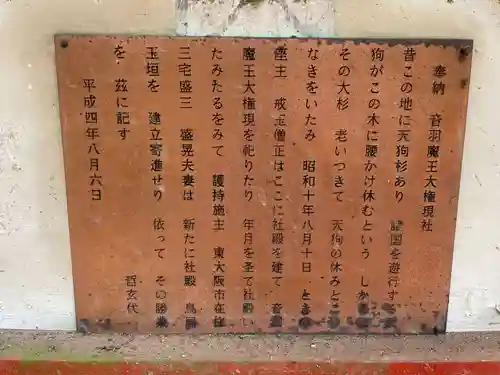 奉納 音羽魔王大権現社
昔この地に天狗杉あり 諸国を遊行す
狗がこの木に腰かけ休むという しか
その大杉 老いつきて 天狗の休みところ
なきをいたみ 昭和十年八月十日 ときの
座主 戒玉僧正はここに社殿を建て 音
魔王大権現を祀りたり 年月を圣て社殿い
たみたるをみて 護持施主 東大阪市在住
三宅盛三 盛晃夫妻は 新たに社殿 鳥居
玉垣を 建立寄進せり 依って その勝
を 茲に記す
哲玄代
平成四年八月六日